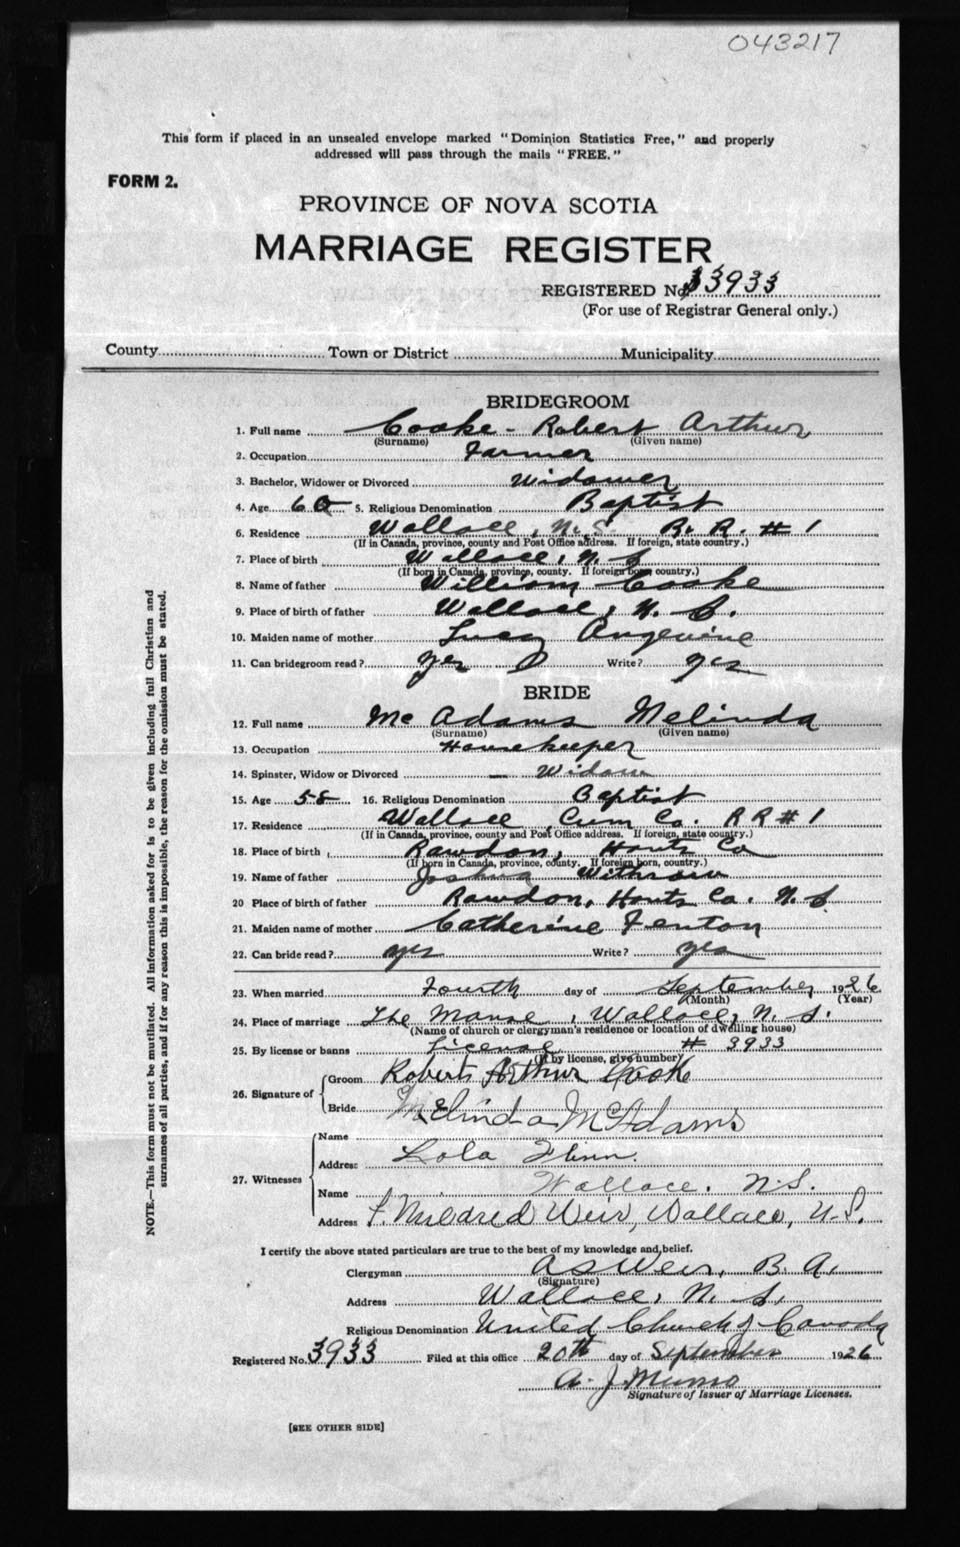 043217
This form if placed in an unsealed envelope marked "Dominion Statistics Free," and properly
addressed will pass through the mails "FREE."
FORM 2.
PROVINCE OF NOVA SCOTIA
MARRIAGE REGISTER
REGISTERED No. 3933
(For use of Registrar General only.)
County Town or District Municipality
BRIDEGROOM
1. Full name Cooke - Robert Arthur
(Surname) (Given name)
2. Occupation Farmer
3. Bachelor, Widower or Divorced Widower
4. Age 60 5. Religious Denomination Baptist
6. Residence Wallace, N. S. R. R. # 1
(If in Canada, province, county and Post Office address. If foreign, state country.)
7. Place of birth Wallace, N. S
(If born in Canada, province, county. If foreign born, country.)
8. Name of father William Cooke
9. Place of birth of father Wallace, N. S.
10. Maiden name of mother Lucy Angevine
11. Can bridegroom read? yes Write? yes
BRIDE
12. Full name McAdams Melinda
(Surname) (Given name)
13. Occupation Housekeeper
14. Spinster, Widow or Divorced — Widow
15. Age 58 16. Religious Denomination Baptist
17. Residence Wallace, Cum Co. R R # 1
(If in Canada, province, county and Post Office address. If foreign, state country.)
18. Place of birth Rawdon, Hants Co
(If born in Canada, province, county. If foreign born, country.)
19. Name of father Joshua Withrow
20 Place of birth of father Rawdon, Hants Co. N. S
21. Maiden name of mother Catherine Fenton
22. Can bride read? yes Write? yes
23. When married Fourth day of September 1926
(Month) (Year)
24. Place of marriage The Manse, Wallace, N. S.
(Name of church or clergyman's residence or location of dwelling house)
25. By license or banns License # 3933
(If by license, give number)
26. Signature of Groom Robert Arthur Cook
Bride Melinda McAdams
27. Witnesses Name
Address Lola Flinn.
Name Wallace, N.S.
Address Mildred Weir, Wallace, N.S.
I certify the above stated particulars are true to the best of my knowledge and belief.
Clergyman A S Weir, B. A.
(Signature)
Address Wallace, N. S.
Religious Denomination United Church of Canada
Registered No. 3933 Filed at this office 20th day of September 1926
A. J. Munro
Signature of Issuer of Marriage Licenses.
[SEE OTHER SIDE]
NOTE.—This form must not be mutilated. All information asked for is to be given including full Christian and
surnames of all parties, and if for any reason this is impossible, the reason for the omission must be stated.